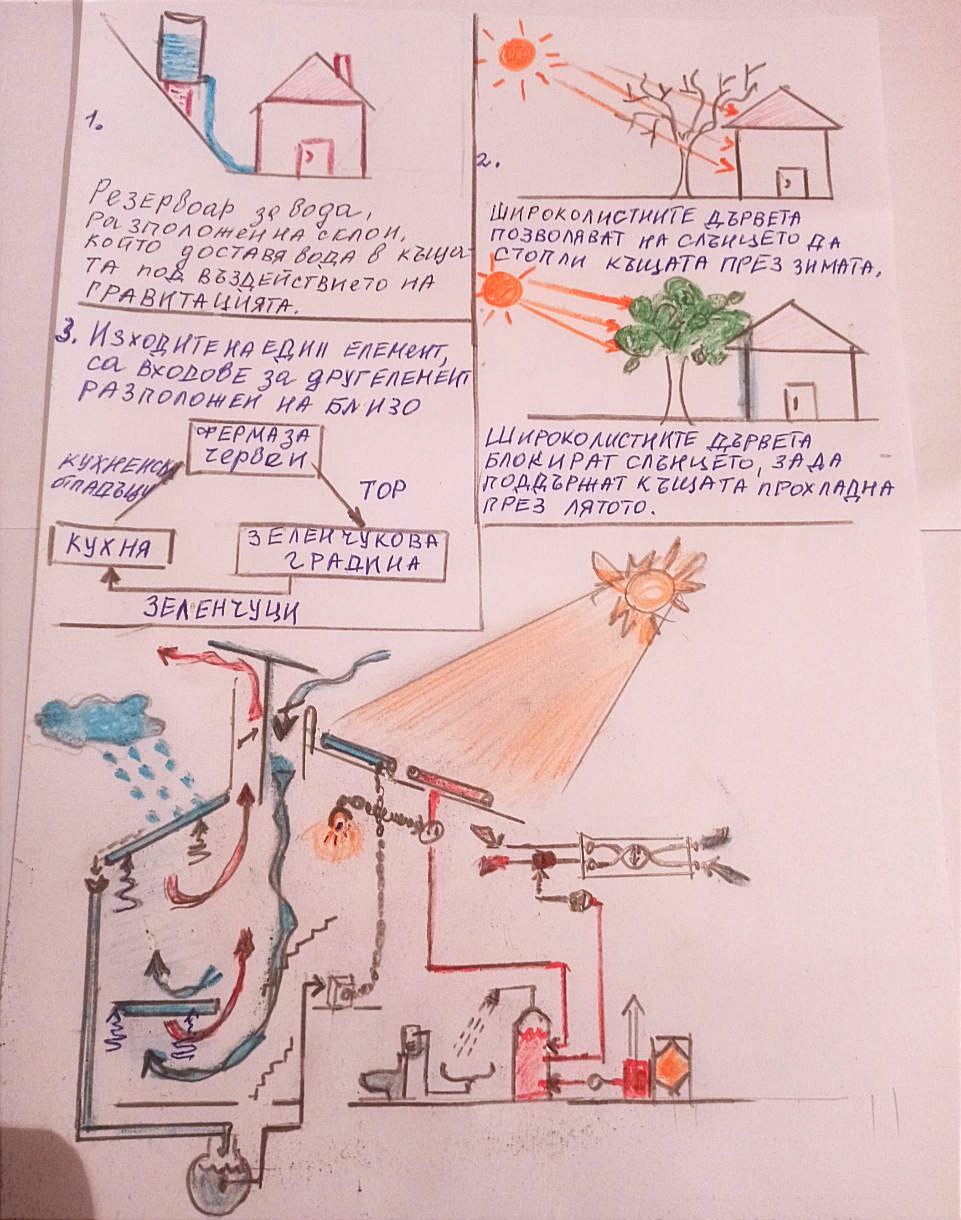 1.
Резервоар за вода,
разположен на склон,
който доставя вода в къща-
та под въздействието на
гравитацията.
2.
Широколистните дървета
позволяват на слънцето да
стопли къщата през зимата,
Широколистните дървета
блокират слънцето, за да
поддържат къщата прохладна
през лятото.
3. Изходите на един елемент,
са входове за друг елемент
разположен на близо
ферма за
червеи
Кухненски
отпадъци
Тор
Кухня
Зеленчукова
градина
Зеленчуци